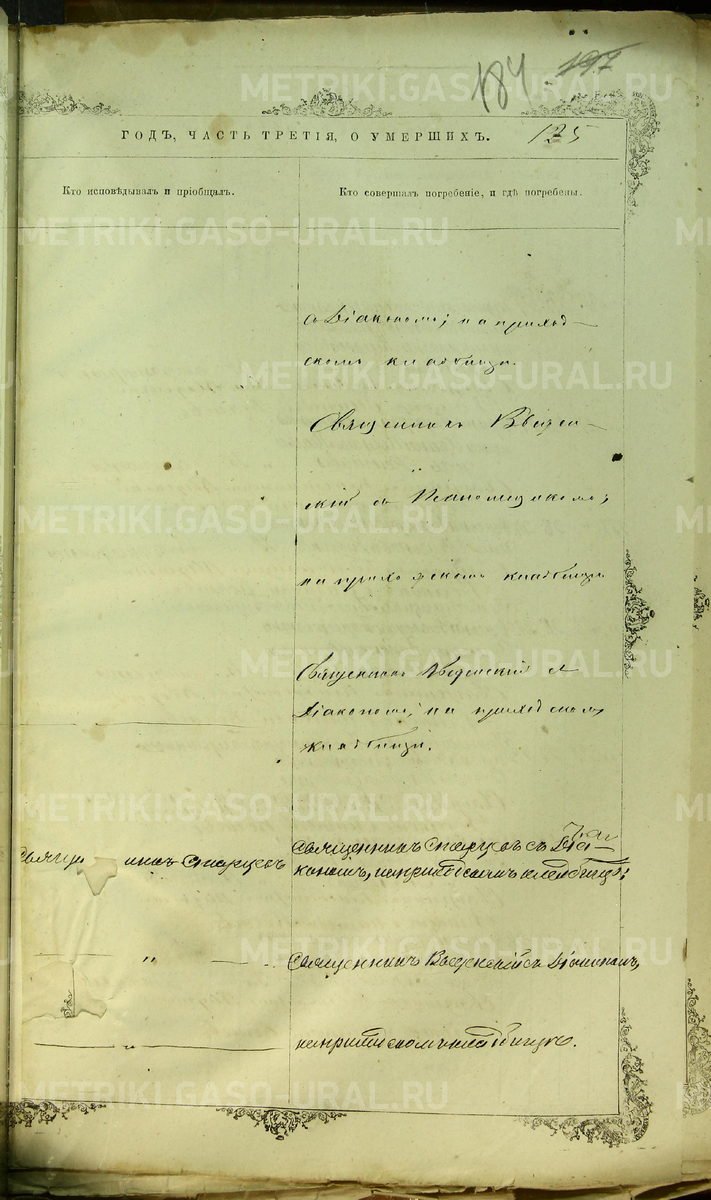 184 197
ГОДЪ, ЧАСТЬ ТРЕТІЯ, О УМЕРШИХЪ. 125
Кто исповѣдывалъ и пріобщалъ.
Кто совершалъ погребеніе, и гдѣ погребены.
съ Діакономъ; на приход-
скомъ кладбищѣ.
Священникъ Введен-
скій съ Псаломщикомъ;
на приходскомъ кладбищѣ
Священникъ Введенскій съ
Діакономъ; на приходскомъ
кладбищѣ.
Священникъ Старцевъ
Священникъ Старцевъ съ Діа-
кономъ, на приходскомъ кладбищѣ;
Священникъ Введенскій съ Діакономъ,
на приходскомъ кладбищѣ.
METRIKI.GASO-URAL.RU